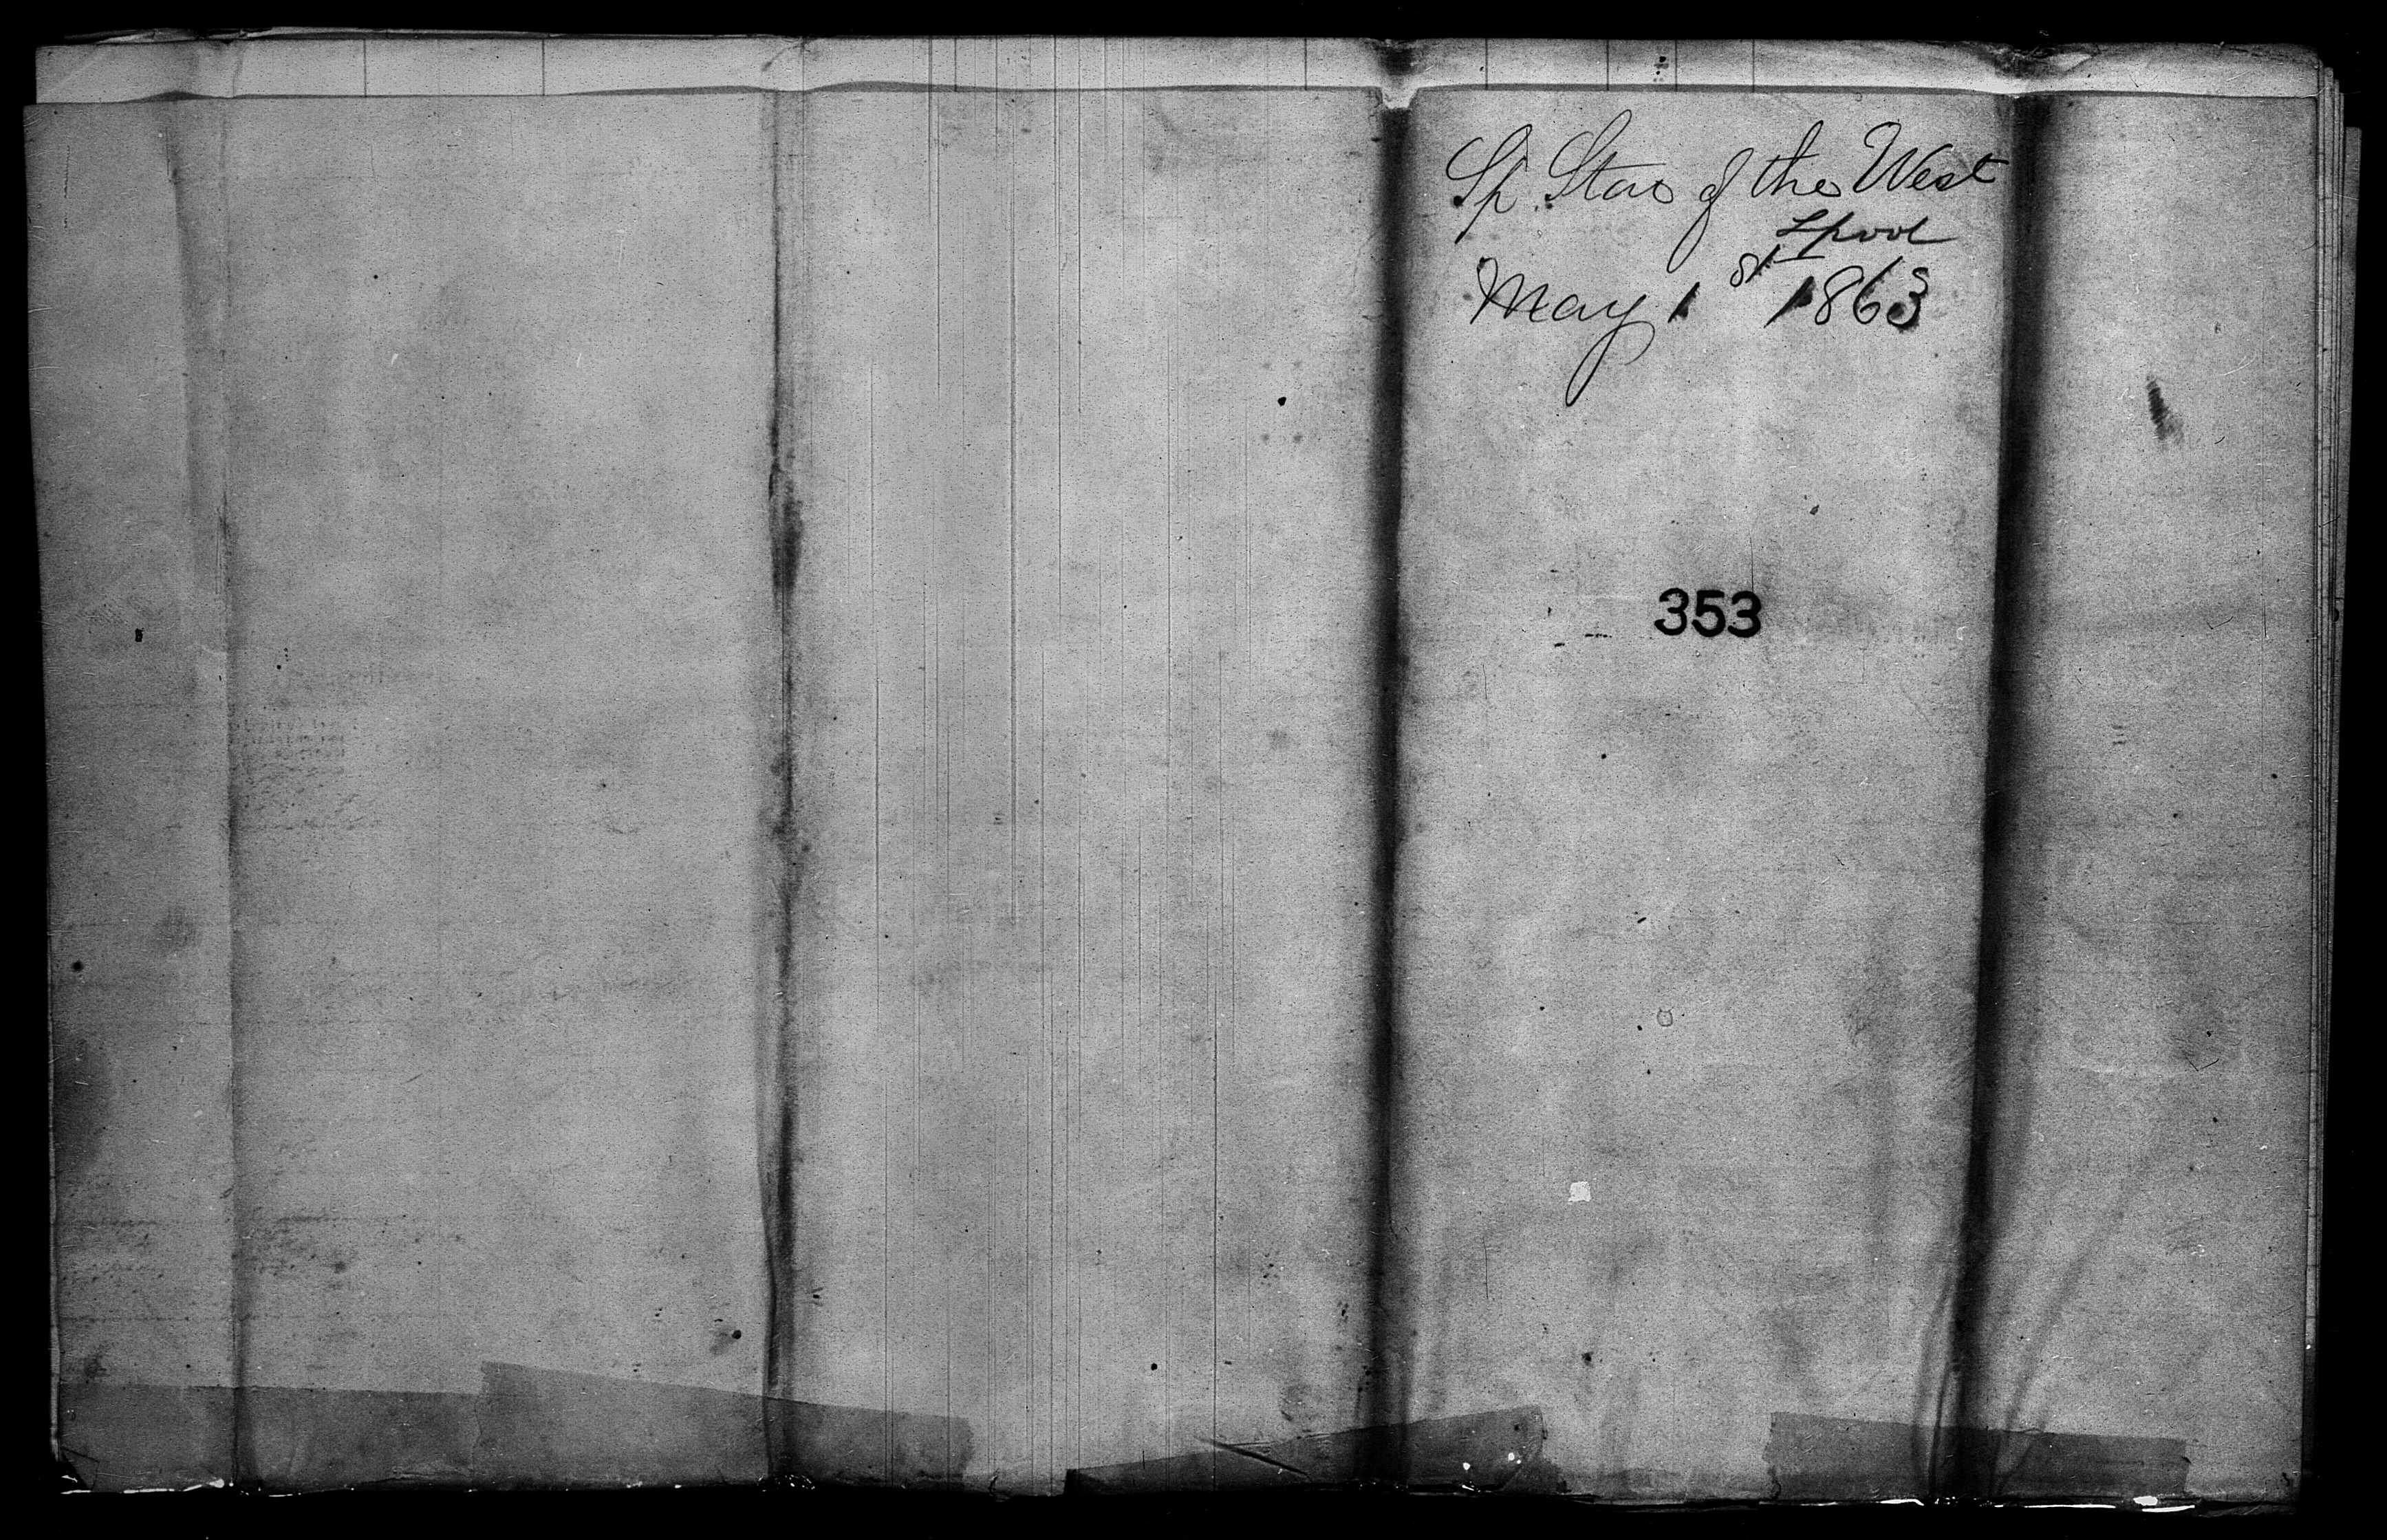 Sp Star of the West
Lpool
May 1st 1863
353